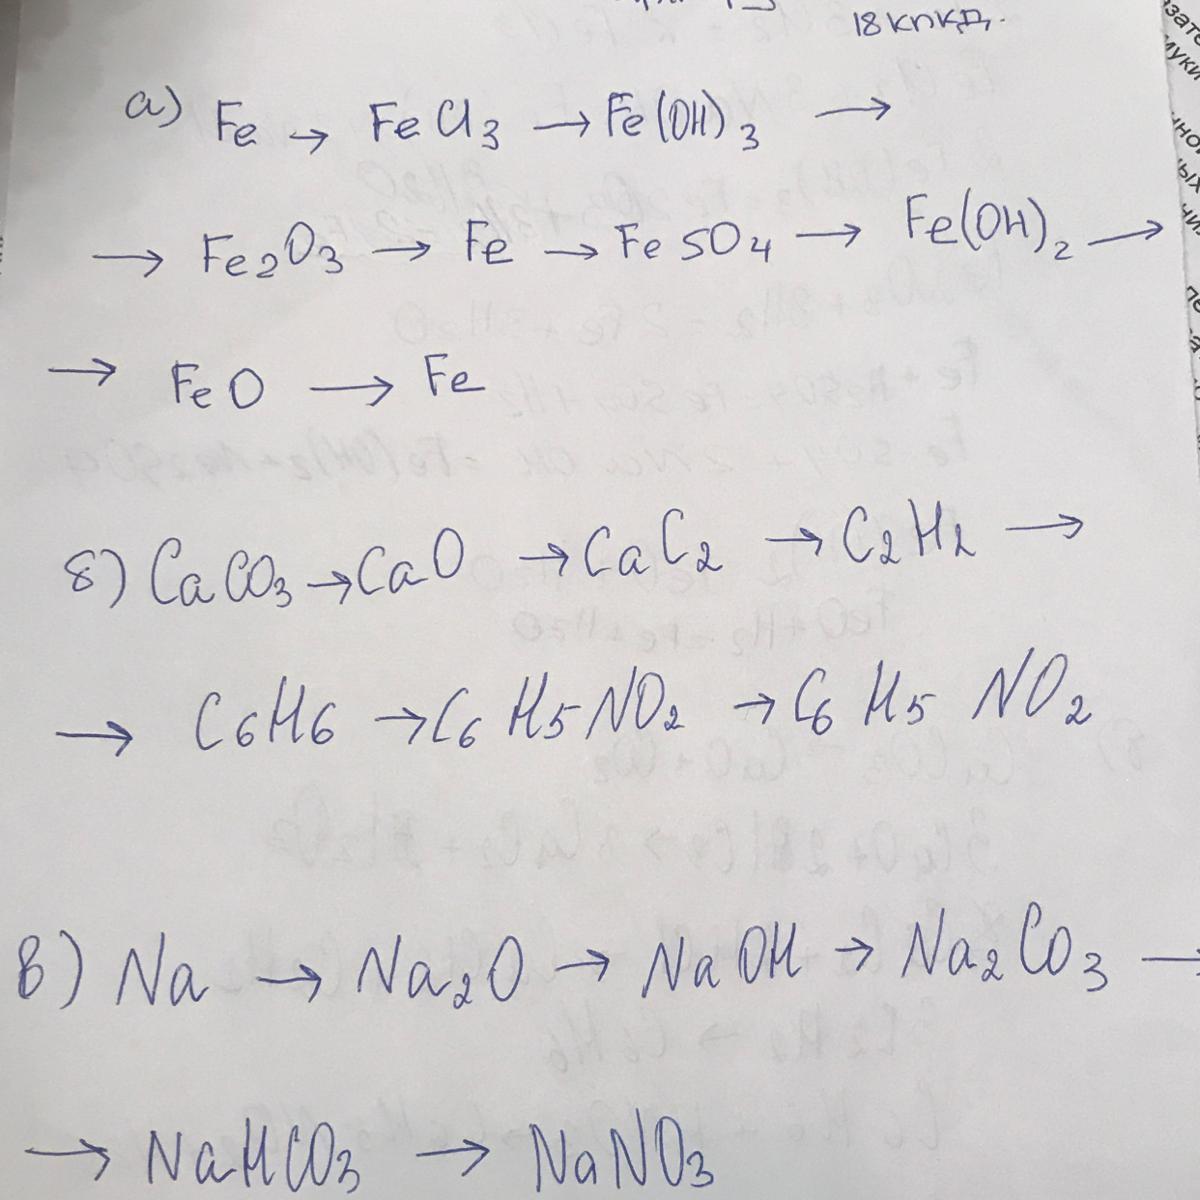 18 кпкд.
а) Fe → FeCl3 → Fe(OH)3 →
→ Fe2O3 → Fe → FeSO4 → Fe(OH)2 →
→ FeO → Fe
б) CaCO3 → CaO → CaC2 → C2H2 →
→ C6H6 → C6H5NO2 → C6H5NO2
в) Na → Na2O → NaOH → Na2CO3 →
→ NaHCO3 → NaNO3